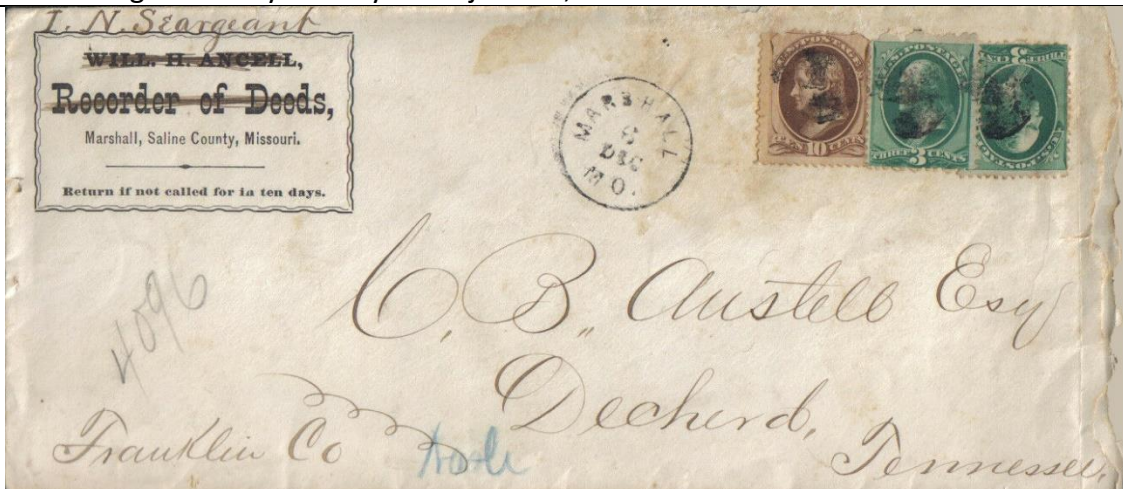 I. N. Seargeant
WILL. H. ANCELL,
Recorder of Deeds,
Marshall, Saline County, Missouri.
Return if not called for in ten days.
MARSHALL
6
DEC
MO.
U.S. POSTAGE
10
U.S. POSTAGE
THREE 3 CENTS
THREE 3 CENTS
U.S. POSTAGE
4096
C. B. Austell Esq
Decherd,
Franklin Co
Tennessee,